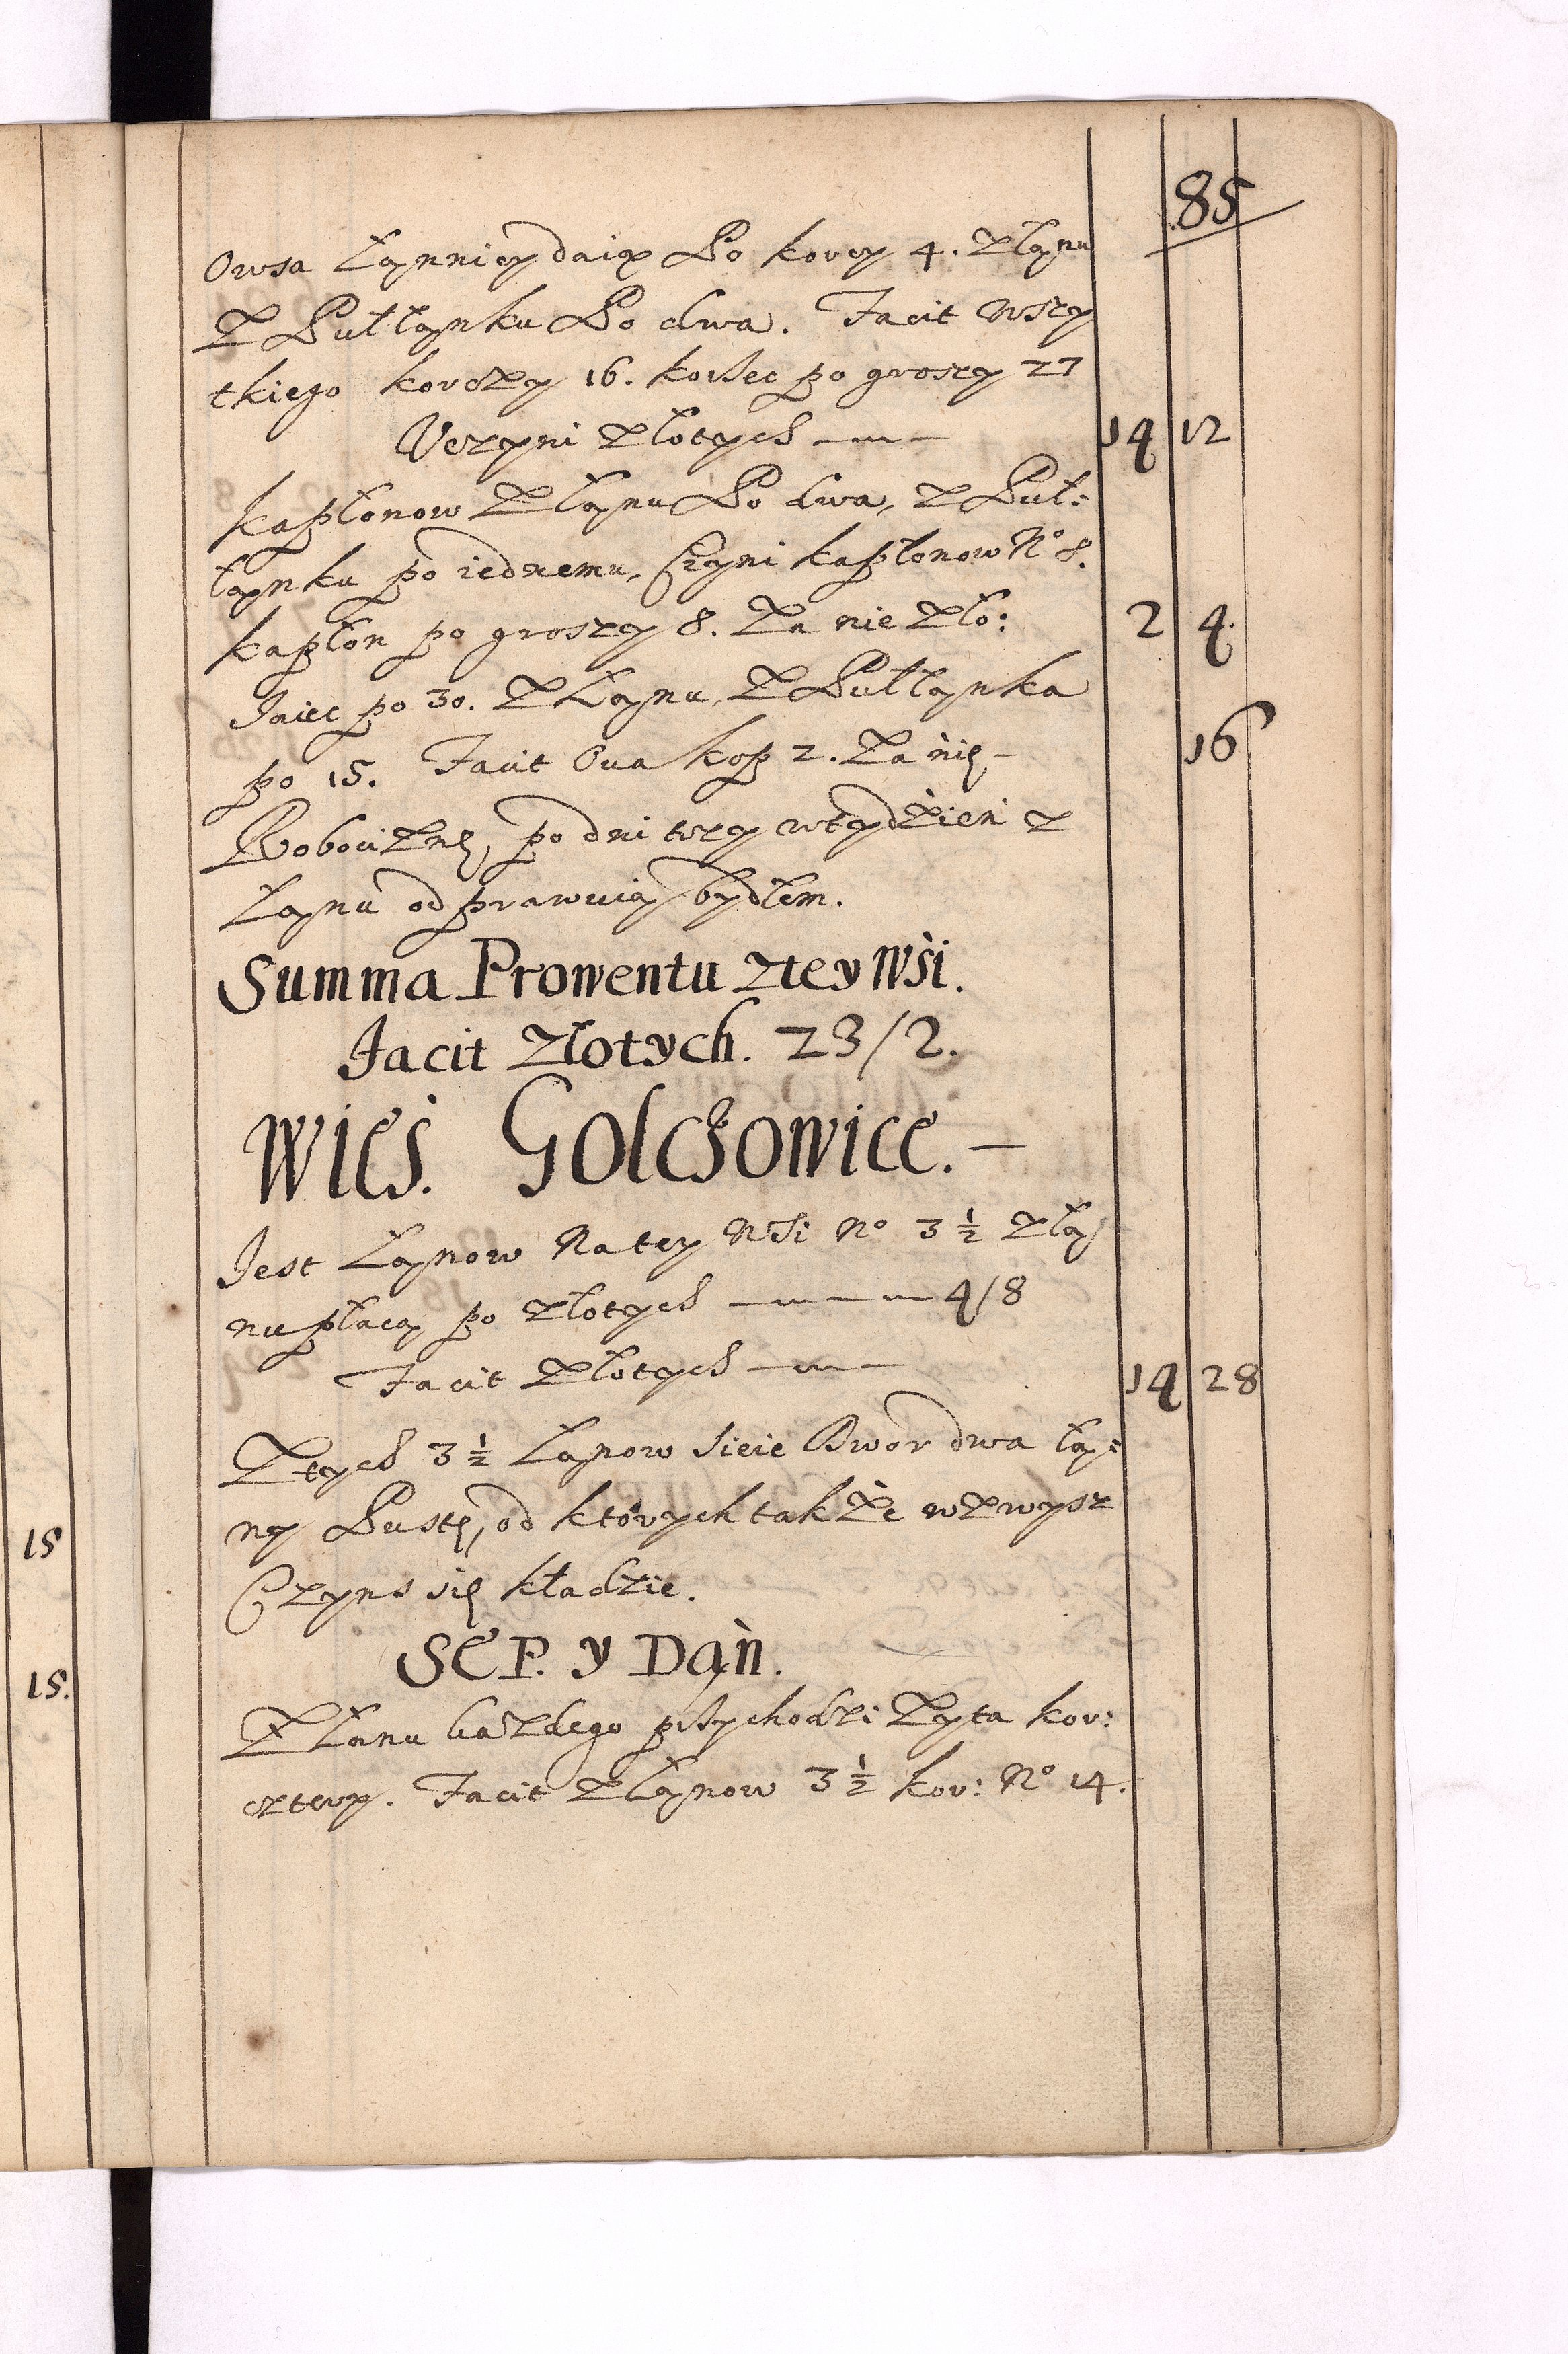 85
Owsa Łąnnicy daią Po korcy 4. z łąnu
Z Pułłąnku Po dwa. Facit wszy
tkiego korczy 16. korzec po groszy 27
Uczyni Złotych 14 12
Kapłonow Z łąnu Po dwa, Z Puł:
łąnku po iednemu, Czyni kapłonow No 8.
kapłon po groszy 8. Za nie Zło: 2 4.
Iaiec po 30. Z Łąnu, Z Pułłąnka
po 15. Facit Oua kop 2. Za nię - 16
Robociznę, po dni trzy w tydzień z
Łąnu odprawuią bydłem.
Summa Prowentu z tey Wśi.
Facit Złotych. 23/2.
Wieś. Golchowice. -
Iest Łąnow Na tey Wsi No 3 ½ Z łą
nu płacą po złotych 4/8
Facit Złotych 14 28
Z tych 3 ½ Łąnow sieie Dwor dwa łą:
ny Pustę, od ktorych takze wzwysz
Czyns się kładzie.
SEP. y Dąń.
Z Łanu kazdego przychodzi Zyta kor:
cztery. Facit Z łąnow 3 ½ kor: No 14.
15
15.